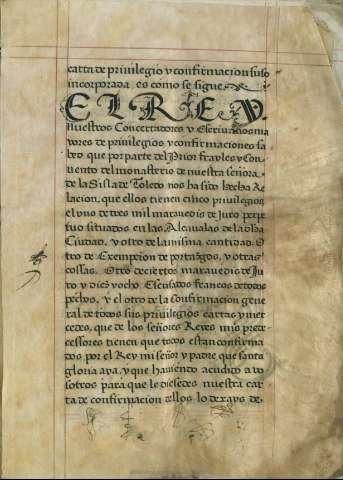 carta de privilegio y confirmacion suso
incorporada es como se sigue.
EL REY.
Nuestros Concertadores y Escrivanos ma
yores de privilegios y confirmaciones sa
bed que por parte del Prior frayles y Con
vento del monasterio de nuestra señora
de la Sisla de Toledo nos ha sido hecha Re
lacion, que ellos tienen cinco privilegios
el uno de tres mil maravedis de Juro perpe
tuo situados en las Alcavalas de la dha
Ciudad, y otro de la misma cantidad. O
tro de Exempcion de portazgos, y otras
cossas. Otro de ciertos maravedis de Ju
ro y diez y ocho Escusados francos de todos
pechos, y el otro de la Confirmacion gene
ral de todos sus privilegios cartas y mer
cedes, que de los señores Reyes mis prede
cessores tienen que todos estan confirma
dos por el Rey mi señor y padre que santa
gloria aya, y que haviendo acudido a vo
sotros para que le diesedes nuestra car
ta de confirmacion dellos, lo dexays de-